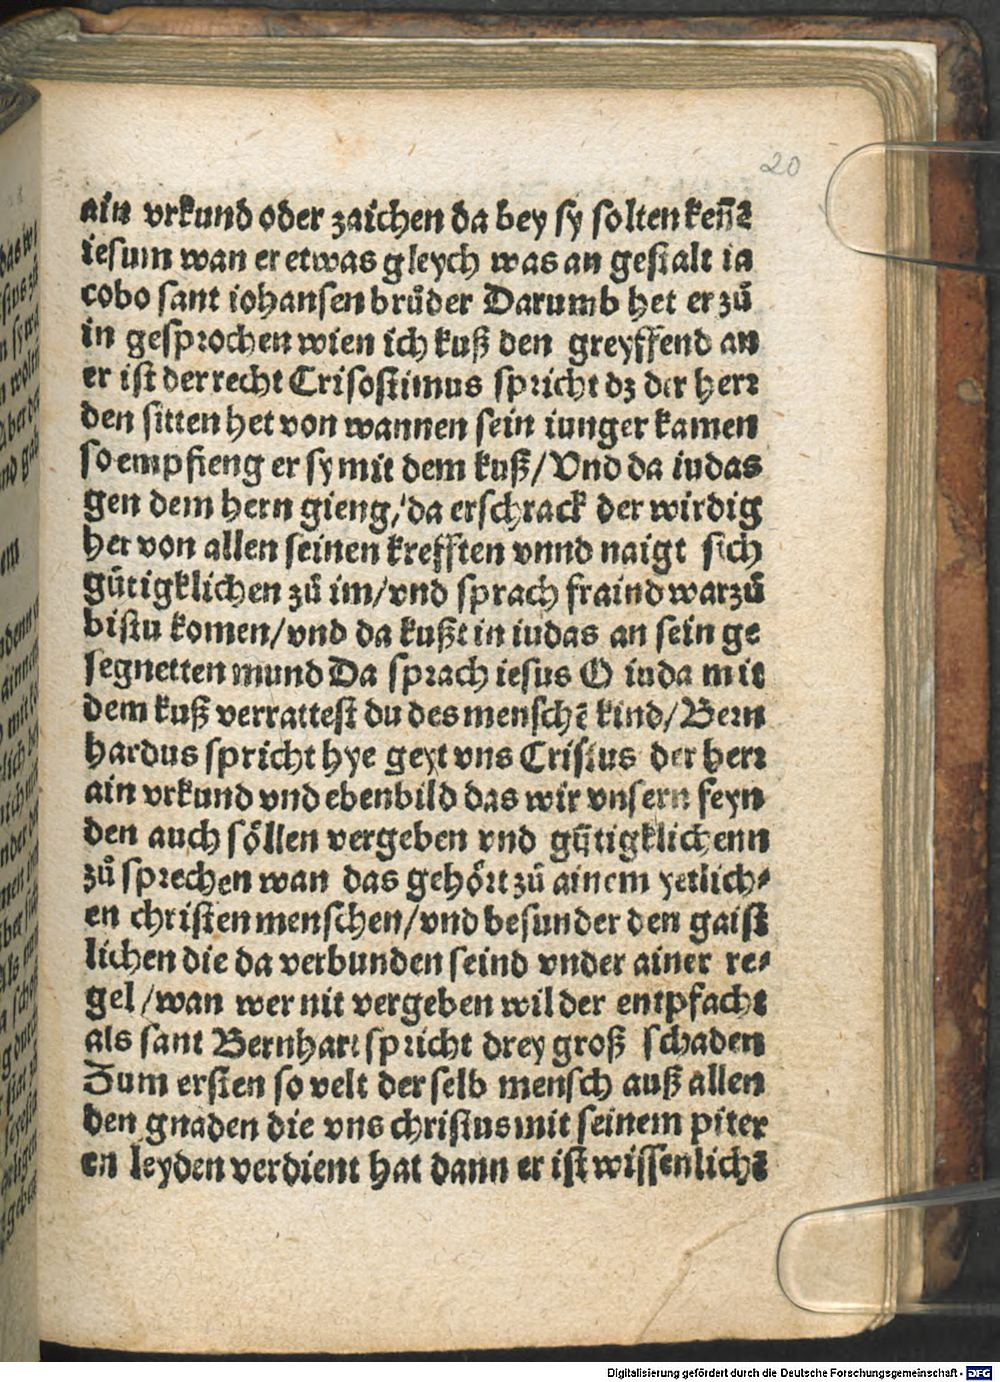 20
ain vrkund oder zaichen da bey sy solten keñē
iesum wan er etwas gleych was an gestalt ia
cobo sant iohansen brůder Darumb het er zů
in gesprochen wien ich kuß den greyffend an
er ist der recht Crisostimus spricht dz der herr
den sitten het von wannen sein iunger kamen
so empfieng er sy mit dem kuß/Vnd da iudas
gen dem hern gieng/da erschrack der wirdig
her von allen seinen krefften vnnd naigt sich
gůtigklichen zů im/vnd sprach fraind warzů
bistu komen/vnd da kußt in iudas an sein ge
segnetten mund Da sprach iesus O iuda mit
dem kuß verrattest du des menschē kind/Bern
hardus spricht hye geyt vns Cristus der herr
ain vrkund vnd ebenbild das wir vnsern feyn
den auch söllen vergeben vnd gůtigklichenn
zů sprechen wan das gehört zů ainem yetlich⸗
en christen menschen/vnd besunder den gaist
lichen die da verbunden seind vnder ainer re⸗
gel/wan wer nit vergeben wil der entpfacht
als sant Bernhart spricht drey groß schaden
Zum ersten so velt der selb mensch auß allen
den gnaden die vns christus mit seinem piter
en leyden verdient hat dann er ist wissenlichē
Digitalisierung gefördert durch die Deutsche Forschungsgemeinschaft - DFG